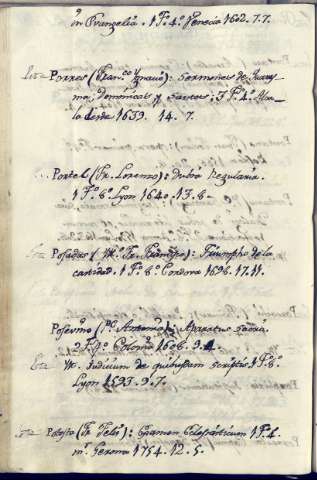 in Evangelia. 1 T.º 4.º Venecia 1602. 7. 7.
Porres (Fran.co Ygnacio): Sermones de Quares
ma, Domínicas y Santos: 3 T.º 4.º Alca
la desde 1639. 14. 7.
Portel (Fr. Lorenzo): Dubia Regularia.
1 T.º 8.º Lyon 1640. 13. 8.
Posadas (M.º Fr. Fran.co): Triumpho de la
castidad. 1 T.º 8.º Cordova 1698. 17. 11.
Posevino (P.e Antonio): Apparatus Sacer
2 T.º f.º Colonia 1608. 9. 4.
Yt. Judicium de quibusdam scriptis 1 T.º 8.º
Lyon 1593. 9. 7.
Potesta (Fr. Felis): Examen Eclesiasticum 1 T.º 4.
m.r Gerona 1754. 12. 5.